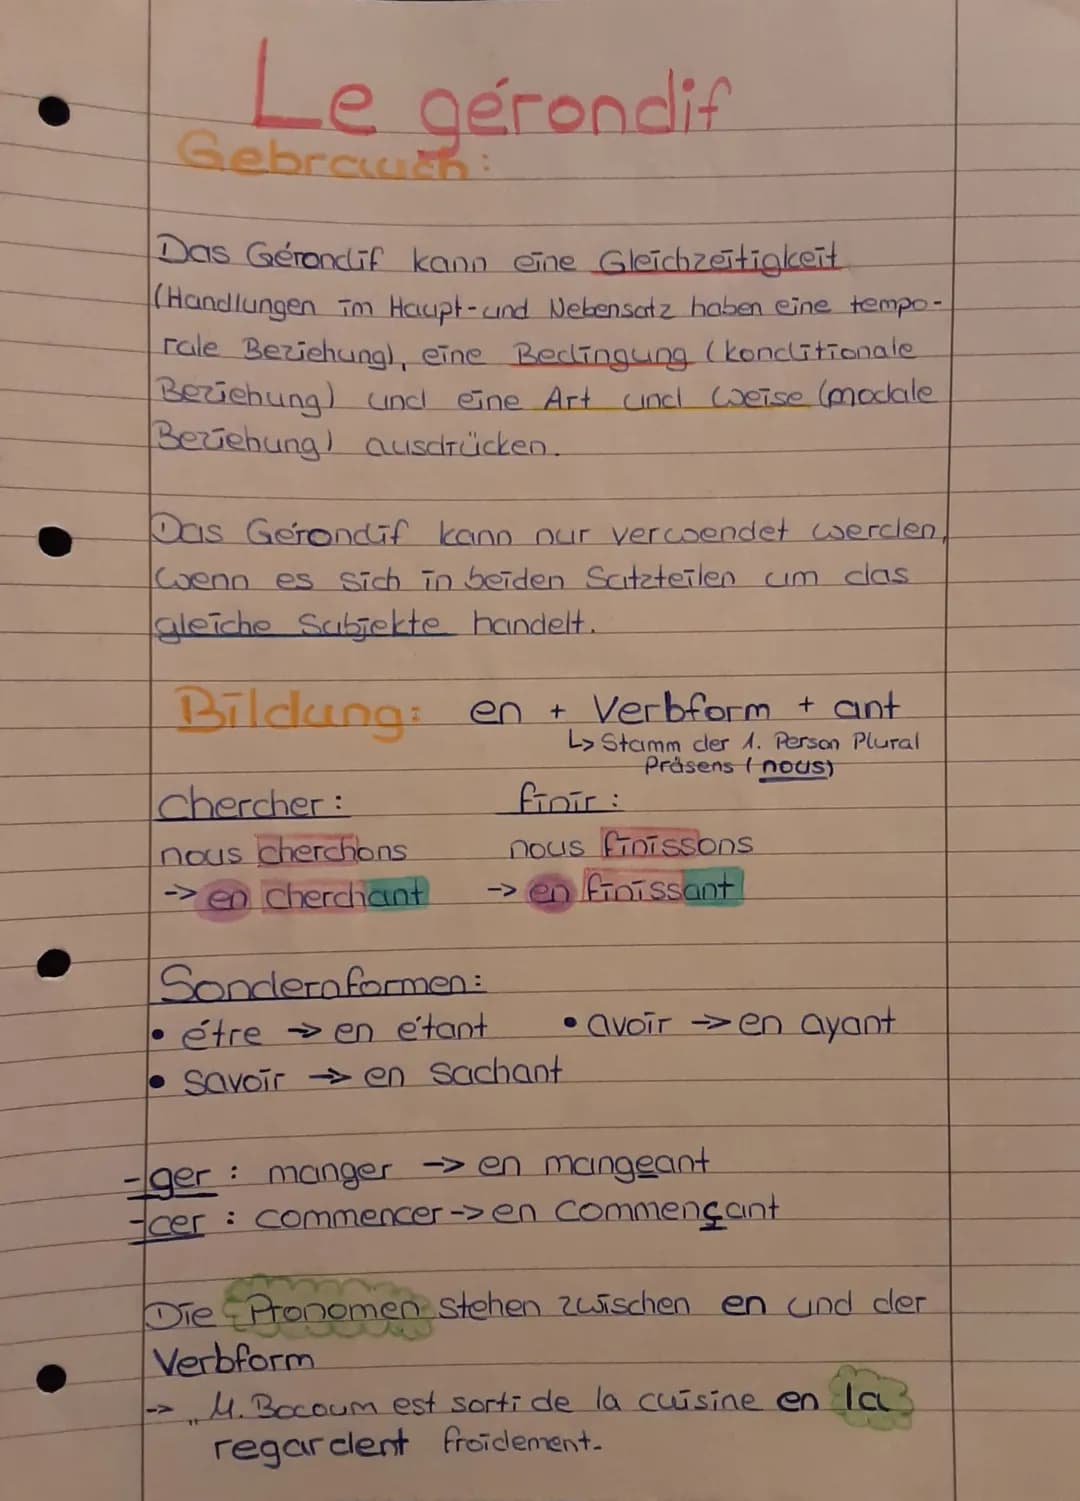 Le gérondif
Gebrauch:
Das Gérondif kann eine Gleichzeitigkeit
(Handlungen im Haupt-und Nebensatz haben eine tempo-
rale Beziehung), eine Bedingung (konditionale
Beziehung) und eine Art und Weise (modale
Beziehung) ausdrücken.
Das Gérondif kann nur verwendet werden,
wenn es sich in beiden Satzteilen um das
gleiche Subjekte handelt.
Bildung: en + Verbform + ant
↳ Stamm der 1. Person Plural
Präsens (nous)
chercher: finir:
nous cherchons nous finissons
-> en cherchant -> en finissant
Sondernformen:
• étre -> en étant • avoir -> en ayant
• savoir -> en sachant
-ger: manger -> en mangeant
-cer: commencer -> en commençant
Die Pronomen stehen zwischen en und der
Verbform
-> „M. Bocoum est sorti de la cuisine en la
regardent froidement.